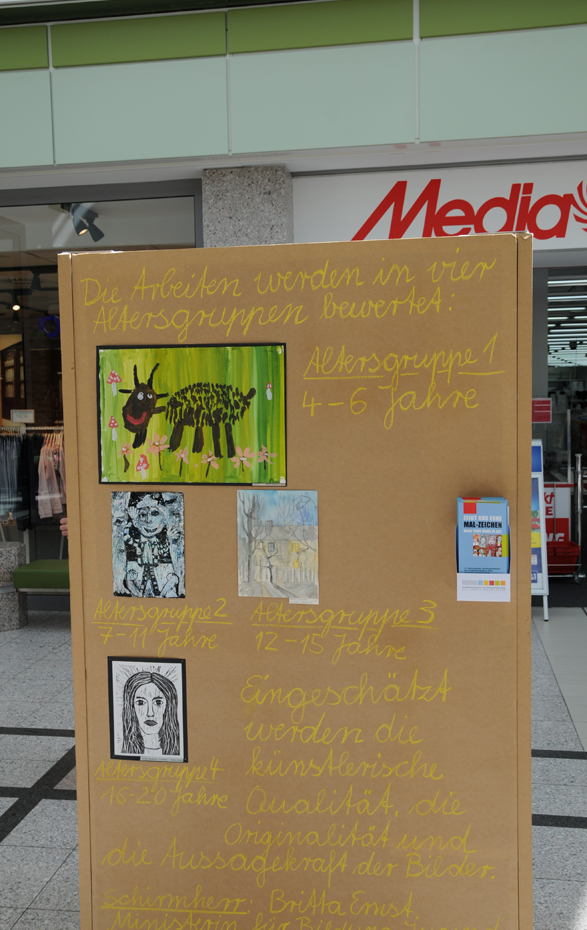 Media
Die Arbeiten werden in vier
Altersgruppen bewertet:
Altersgruppe 1
4-6 Jahre
MAL-ZEICHEN
Altersgruppe 2
7-11 Jahre
Altersgruppe 3
12-15 Jahre
Altersgruppe 4
16-20 Jahre
Eingeschätzt
werden die
künstlerische
Qualität, die
Originalität und
die Aussagekraft der Bilder.
Schirmherr: Britta Ernst
Ministerin für Bildung